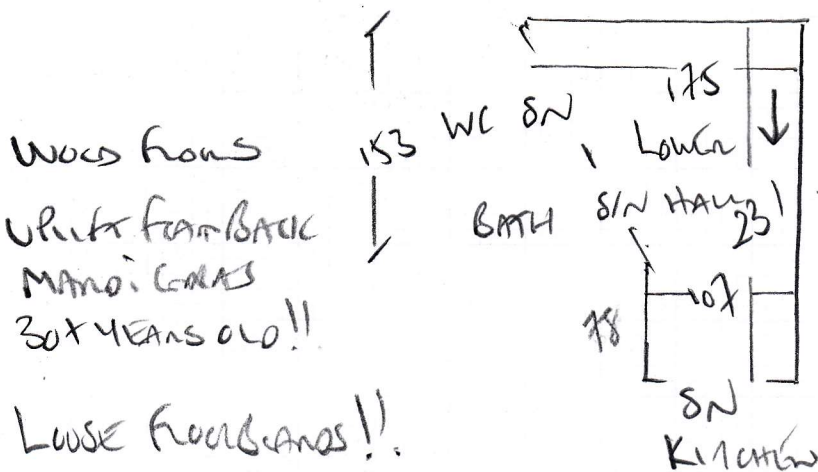 WOOD FLOORS
UPLIFT FOAM BACK
MARDI GRAS
30+ YEARS OLD!!
LOOSE FLOORBOARDS!!
153
WC SN
175
LOWER
BATH S/N HALL
231
107
78
SN
KITCHEN